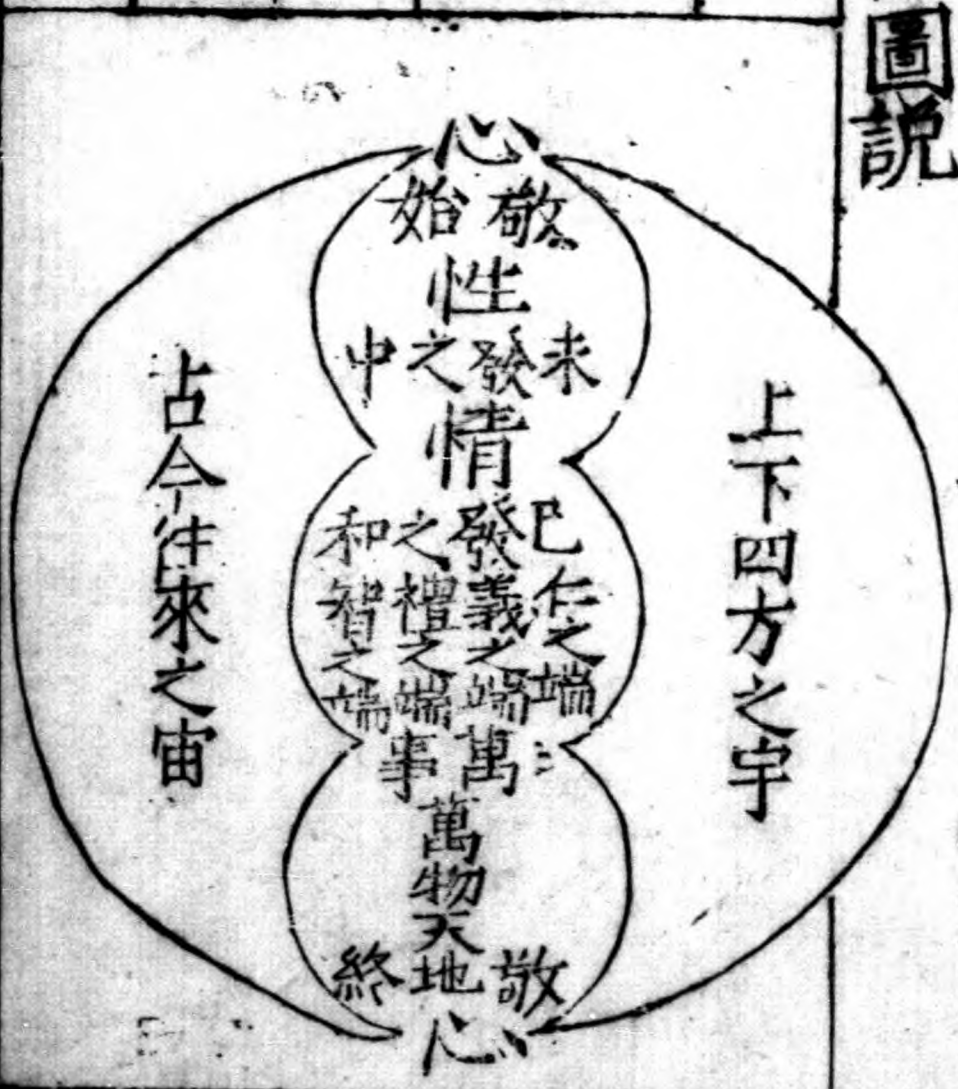 圖說
心
敬始
性
未發之中
情
已發之和
仁之端
義之端
禮之端
智之端
萬事
萬物天地
敬終
心
上下四方之宇
古今往來之宙